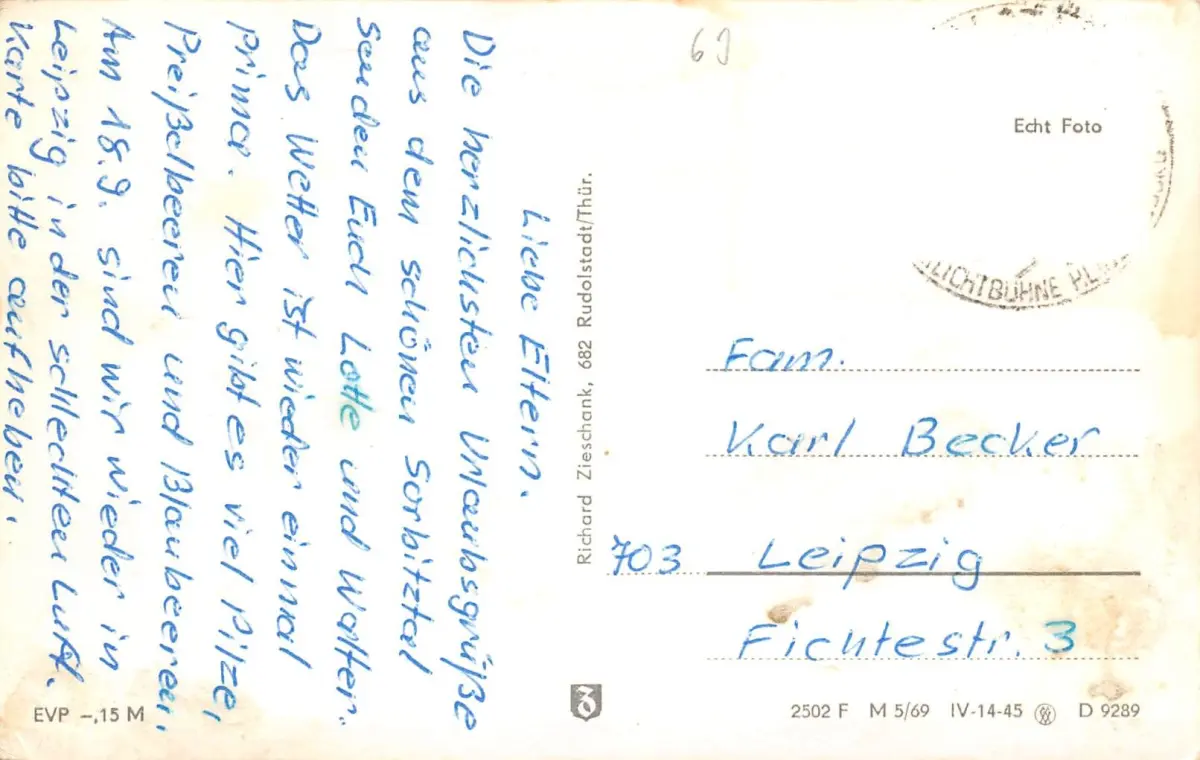 Liebe Eltern.
Die herzlichsten Urlaubsgrüße
aus dem schönen Sorbitztal
senden Euch Lotte und Walter.
Das Wetter ist wieder einmal
prima. Hier gibt es viel Pilze,
Preißelbeeren und Blaubeeren.
Am 18.9. sind wir wieder in
Leipzig in der schlechten Luft.
Karte bitte aufheben.
EVP –,15 M
Richard Zieschank, 682 Rudolstadt/Thür.
69
Echt Foto
LICHTBÜHNE
Fam.
Karl Becker
703 Leipzig
Fichtestr. 3
2502 F M 5/69 IV-14-45 D 9289